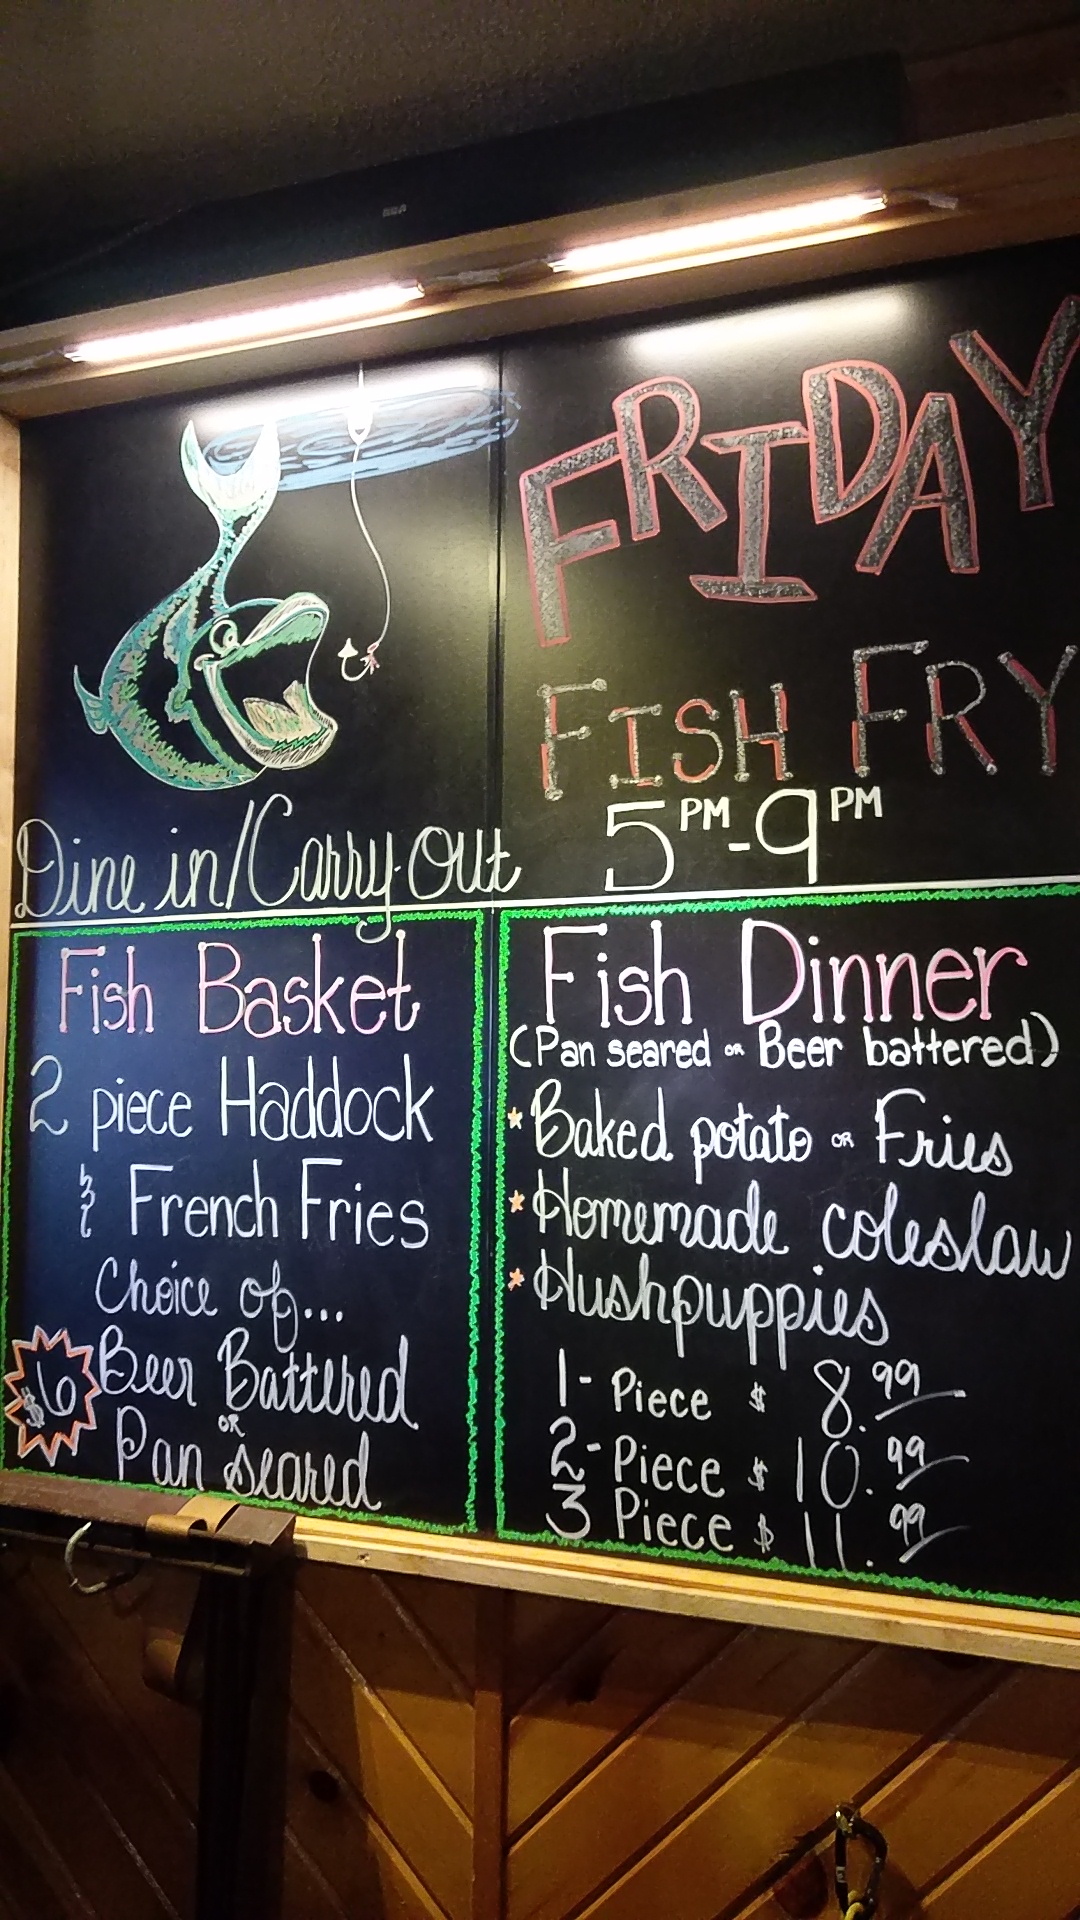 FRIDAY
FISH FRY
5PM-9PM
Dine in/Carry-Out
Fish Basket
2 piece Haddock
& French Fries
Choice of...
$6
Beer Battered
OR
Pan Seared
Fish Dinner
(Pan seared OR Beer battered)
* Baked potato OR Fries
* Homemade coleslaw
* Hushpuppies
1- Piece $ 8.99
2- Piece $ 10.99
3 Piece $ 11.99